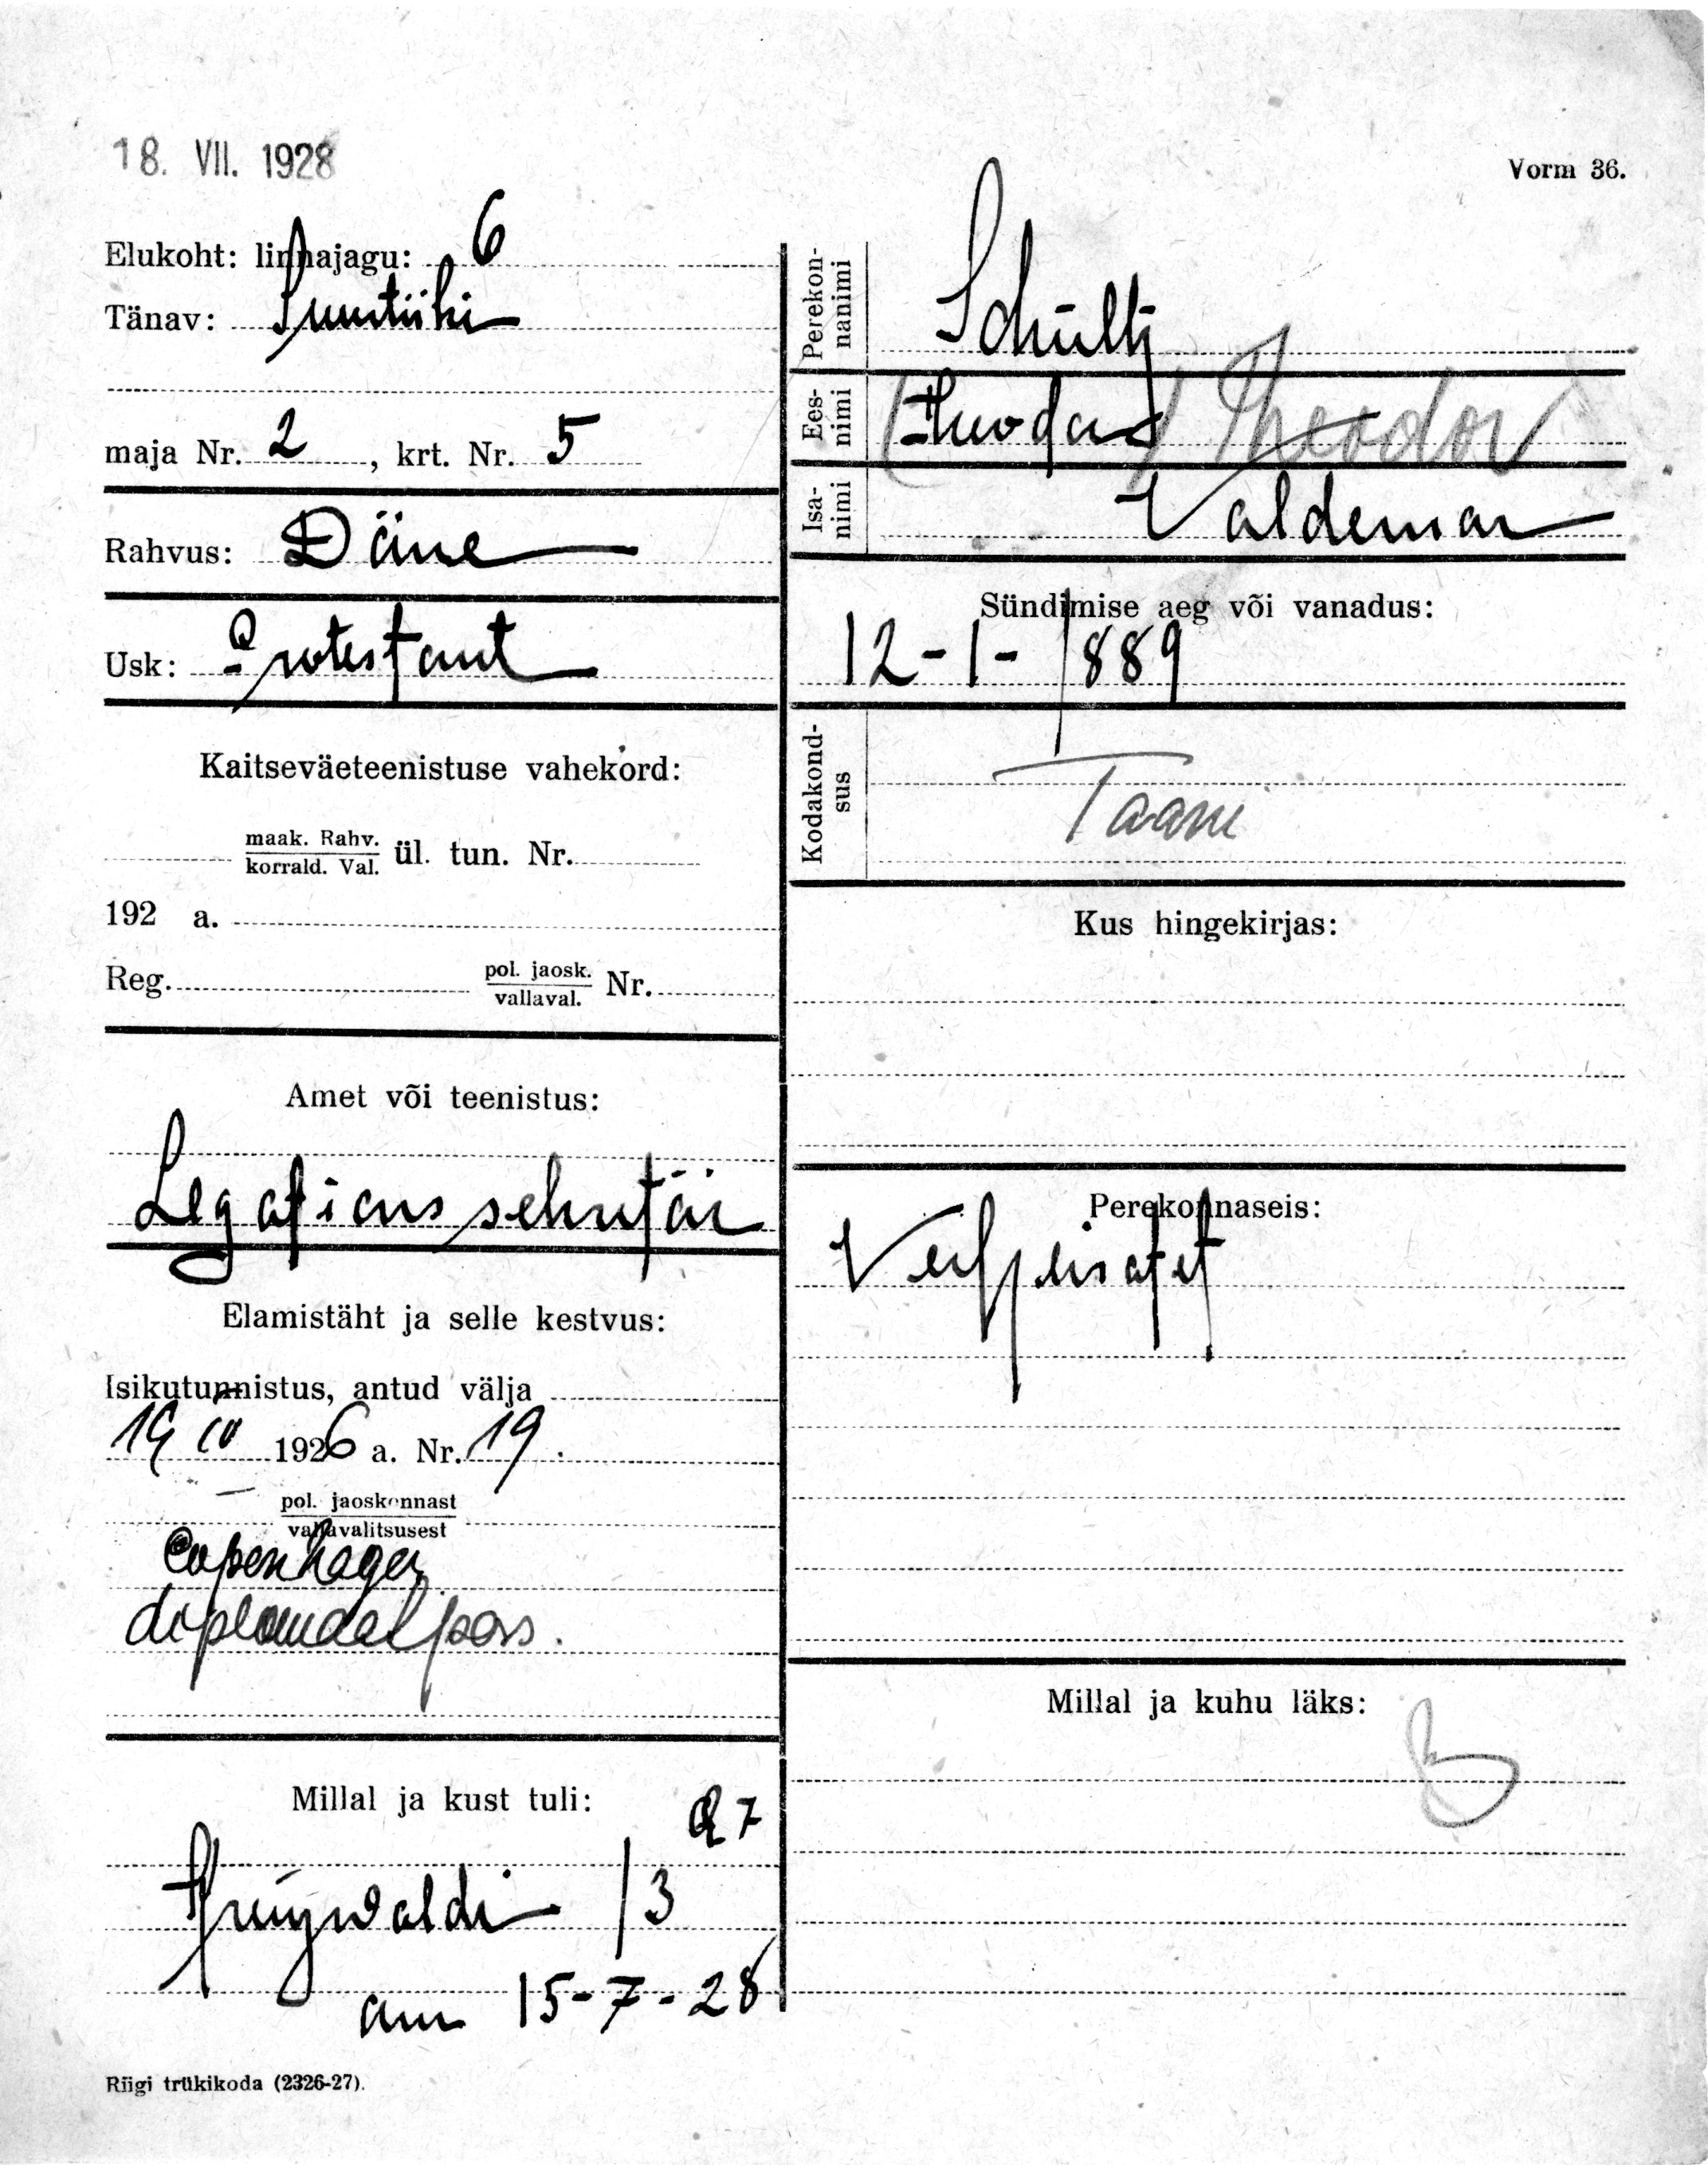 18. VII. 1928
Vorm 36.
Elukoht: linnajagu: 6
Tänav: Suurtüki
maja Nr. 2, krt. Nr. 5
Rahvus: Däne
Usk: Protestant
Kaitseväeteenistuse vahekord:
maak. Rahv.
korrald. Val. ül. tun. Nr.
192 a.
Reg. pol. jaosk.
vallaval. Nr.
Amet või teenistus:
Legationssekretär
Elamistäht ja selle kestvus:
Isikutunnistus, antud välja
1926 a. Nr. 19.
pol. jaoskonnast
vallavalitsusest
Copenhagen
pass.
Millal ja kust tuli:
27
13
am 15-7-28
Riigi trükikoda (2326-27).
Perekon-
nanimi
Schültz
Ees-
nimi
(Theodor) Theodor
Isa-
nimi
Valdemar
Sündimise aeg või vanadus:
12-1-1889
Kodakond-
sus
Taani
Kus hingekirjas:
Perekonnaseis:
Verheiratet
Millal ja kuhu läks: